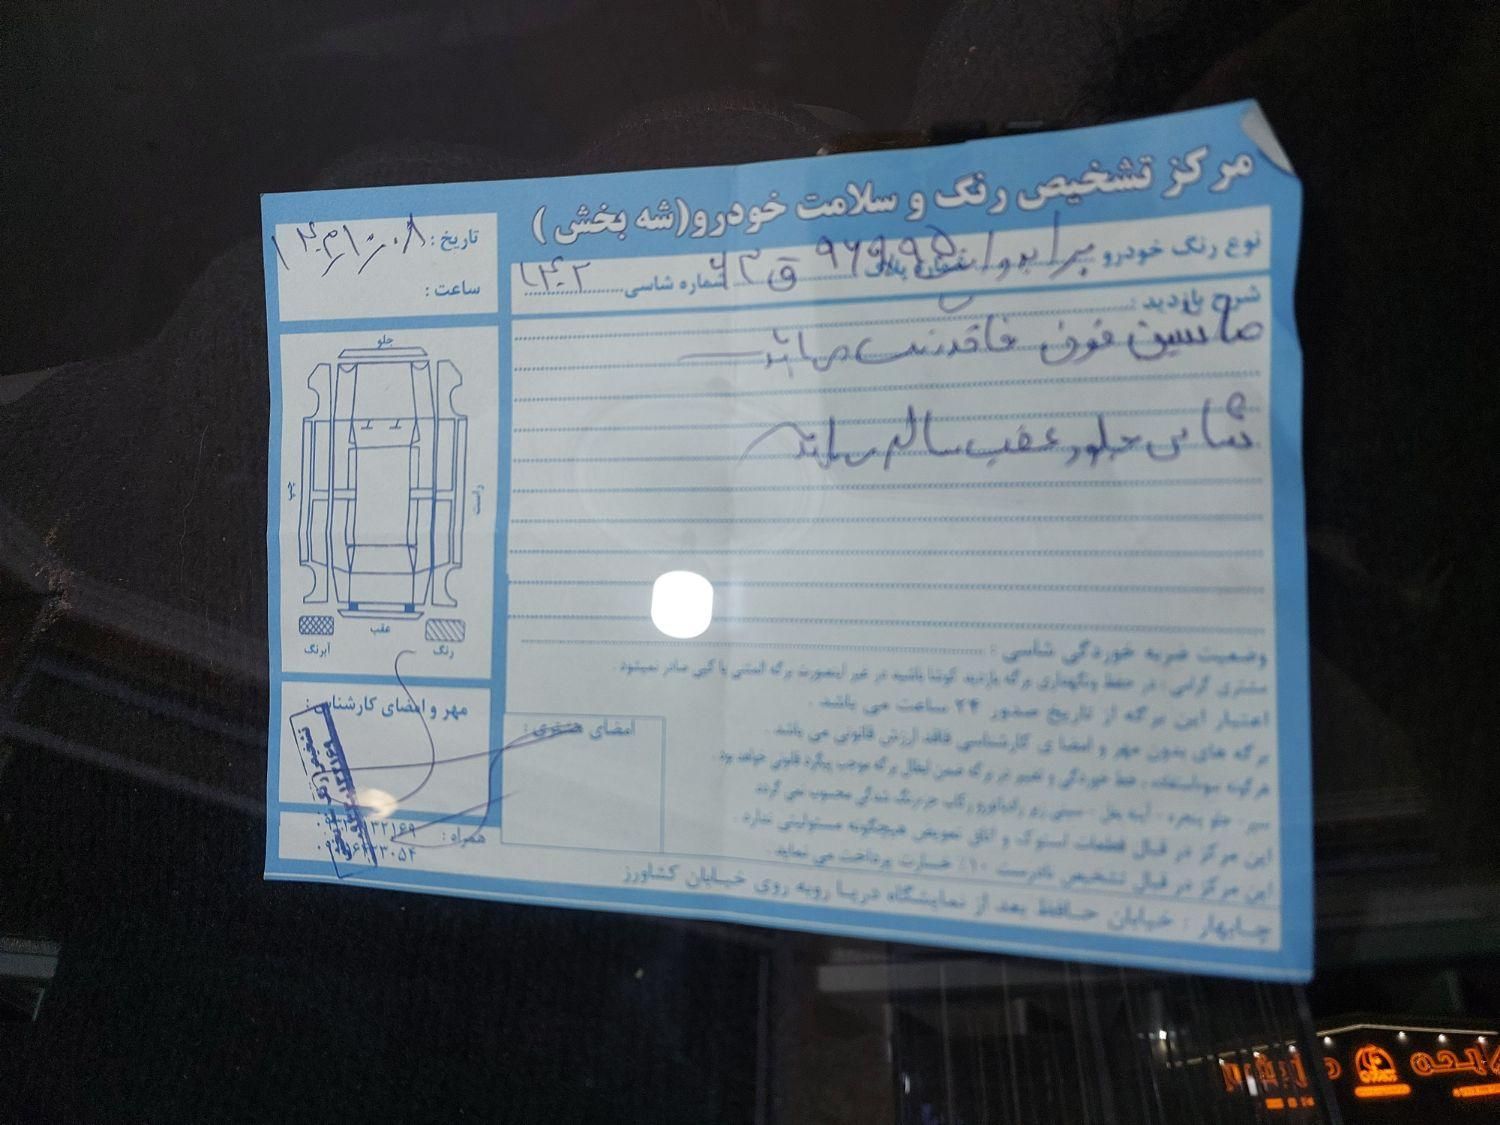 مرکز تشخیص رنگ و سلامت خودرو(شه بخش )
نوع رنگ خودرو
شماره پلاک
شماره شاسی
تاریخ :
ساعت :
شرح بازدید :
ماشین فوق فاقد رنگ میباشد
شاسی جلو و عقب سالم میباشد
جلو
راست
چپ
عقب
رنگ
آبرنگ
وضعیت ضربه خوردگی شاسی :
مشتری گرامی : در حفظ ونگهداری برگه بازدید کوشا باشید در غیر اینصورت برگه المثنی یا کپی صادر نمیشود .
اعتبار این برگه از تاریخ صدور ۲۴ ساعت می باشد .
برگه های بدون مهر و امضا ی کارشناسی فاقد ارزش قانونی می باشد .
هر گونه سوءاستفاده ، خط خوردگی و تغییر در برگه ضمن ابطال برگه موجب پیگرد قانونی خواهد بود .
سپر - جلو پنجره - آینه بغل - سینی زیر رادیاتور و رکاب جزء رنگ شدگی محسوب نمی گردد
این مرکز در قبال قطعات استوک و اتاق تعویض هیچگونه مسئولیتی ندارد .
این مرکز در قبال تشخیص نادرست ۱۰٪ خسارت پرداخت می نماید .
مهر و امضای کارشناس :
امضای مشتری :
همراه :
چابهار : خیابان حافظ بعد از نمایشگاه دریا روبه روی خیابان کشاورز